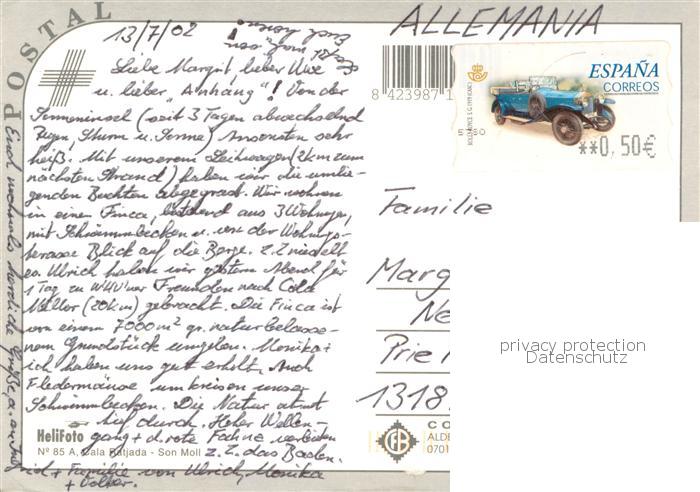 POSTAL
13/7/02
Liebe Margit, lieber Uwe
u. lieber "Anhang"! Von der
Sonneninsel (seit 3 Tagen abwechselnd
Regen, Sturm u. Sonne) Ansonsten sehr
heiß. Mit unserem Leihwagen (2 km zum
nächsten Strand) haben wir die umlie-
genden Buchten abgegrast. Wir wohnen
in einer Finca, bestehend aus 3 Wohnungen,
mit Schwimmbecken u. von der Wohnungs-
terasse Blick auf die Berge. Z.Z. nieselt
es. Ulrich haben wir gestern Abend für
1 Tag zu Freunden nach Cala
Millor (20km) gebracht. Die Finca ist
von einem 7000 m² gr. naturbelasse-
nem Grundstück umgeben. Monika +
ich haben uns gut erholt. Auch
Fledermäuse umkreisen unser
Schwimmbecken. Die Natur atmet
tief durch. Hoher Wellen-
gang + d. rote Fahne verbieten
z.Z. das Baden.
+ Familie von Ulrich, Monika
+ Volker.
Euch nochmals herzliche Grüße
HeliFoto
Nº 85 A, Cala Ratjada - Son Moll
ALLEMANIA
8 423987 1
ESPAÑA
CORREOS
**0,50€
Familie
Marg
Ne
Prie
1318
ALDE
0701
privacy protection
Datenschutz